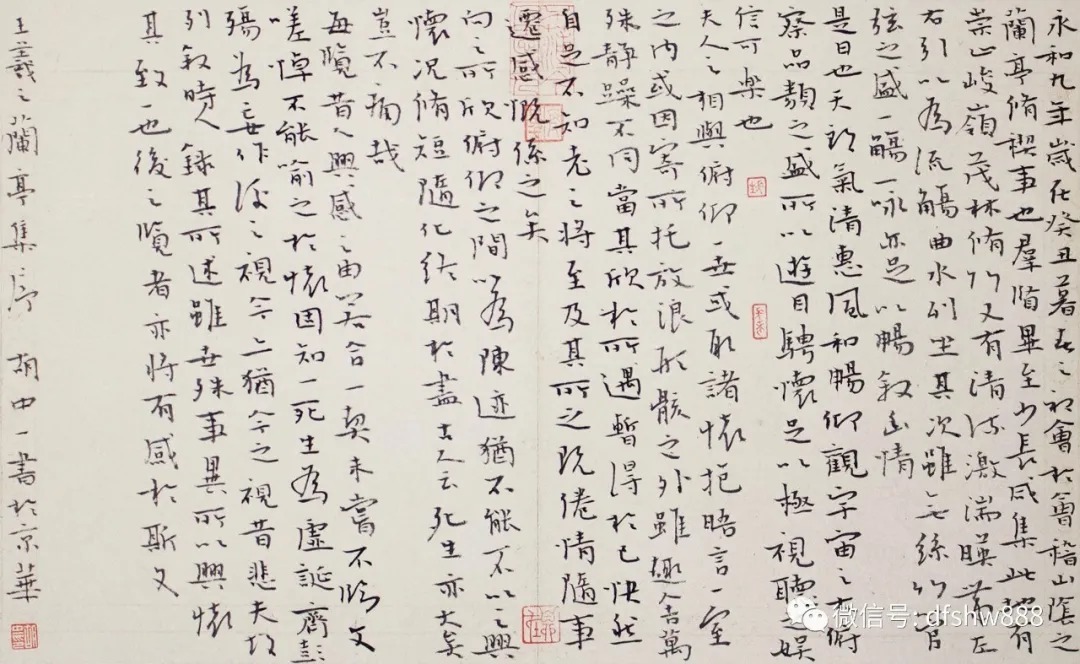 永和九年歲在癸丑暮春之初會於會稽山陰之
蘭亭脩禊事也羣賢畢至少長咸集此地有
崇山峻嶺茂林脩竹又有清流激湍暎帶左
右引以為流觴曲水列坐其次雖無絲竹管
弦之盛一觴一咏亦足以暢敘幽情
是日也天朗氣清惠風和暢仰觀宇宙之大俯
察品類之盛所以遊目騁懷足以極視聽之娛
信可樂也
夫人之相與俯仰一世或取諸懷抱晤言一室
之內或因寄所托放浪形骸之外雖趣舍萬
殊靜躁不同當其欣於所遇暫得於己快然
自足不知老之將至及其所之既倦情隨事
遷感慨係之矣
向之所欣俯仰之間以為陳迹猶不能不以之興
懷況脩短隨化終期於盡古人云死生亦大矣
豈不痛哉
每覽昔人興感之由若合一契未嘗不臨文
嗟悼不能喻之於懷固知一死生為虛誕齊彭
殤為妄作後之視今亦猶今之視昔悲夫故
列敘時人錄其所述雖世殊事異所以興懷
其致一也後之覽者亦將有感於斯文
王羲之蘭亭集序 胡中一書於京華
微信号: dfshw888